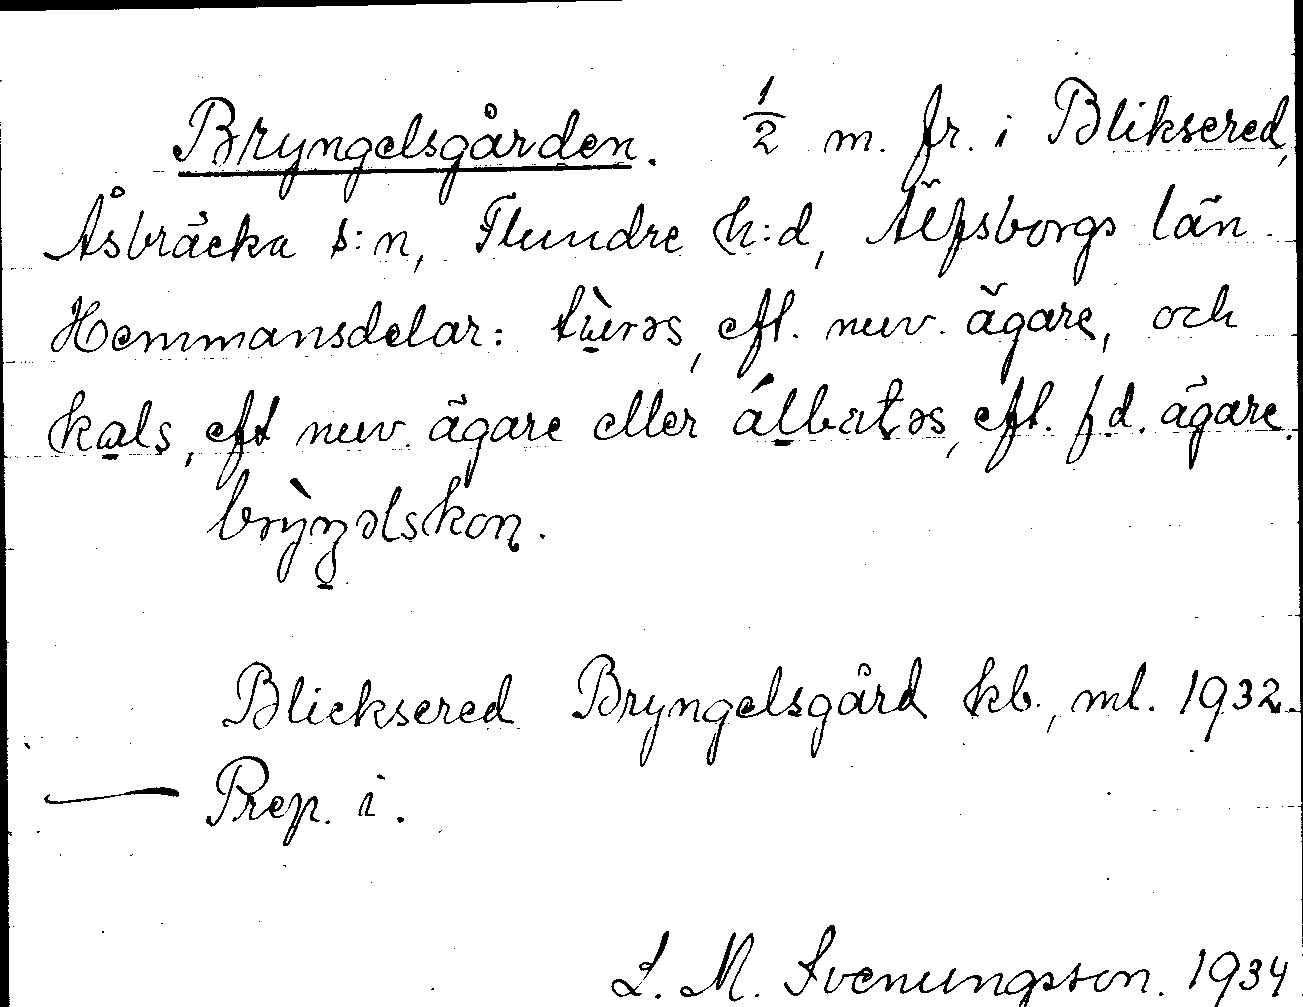 Bryngelsgården. 1/2 m. fr. i Bliksered,
Åsbräcka s:n, Flundre h:d, Älfsborgs län.
Hemmansdelar: tùrəs, eft. nuv. ägare, och
kals, eft nuv. ägare eller álbətəs, eft. fd. ägare.
brỳŋəlskon.
Blicksered Bryngelsgård kb., ml. 1932.
— Prep. i.
L. M. Svenungsson. 1934